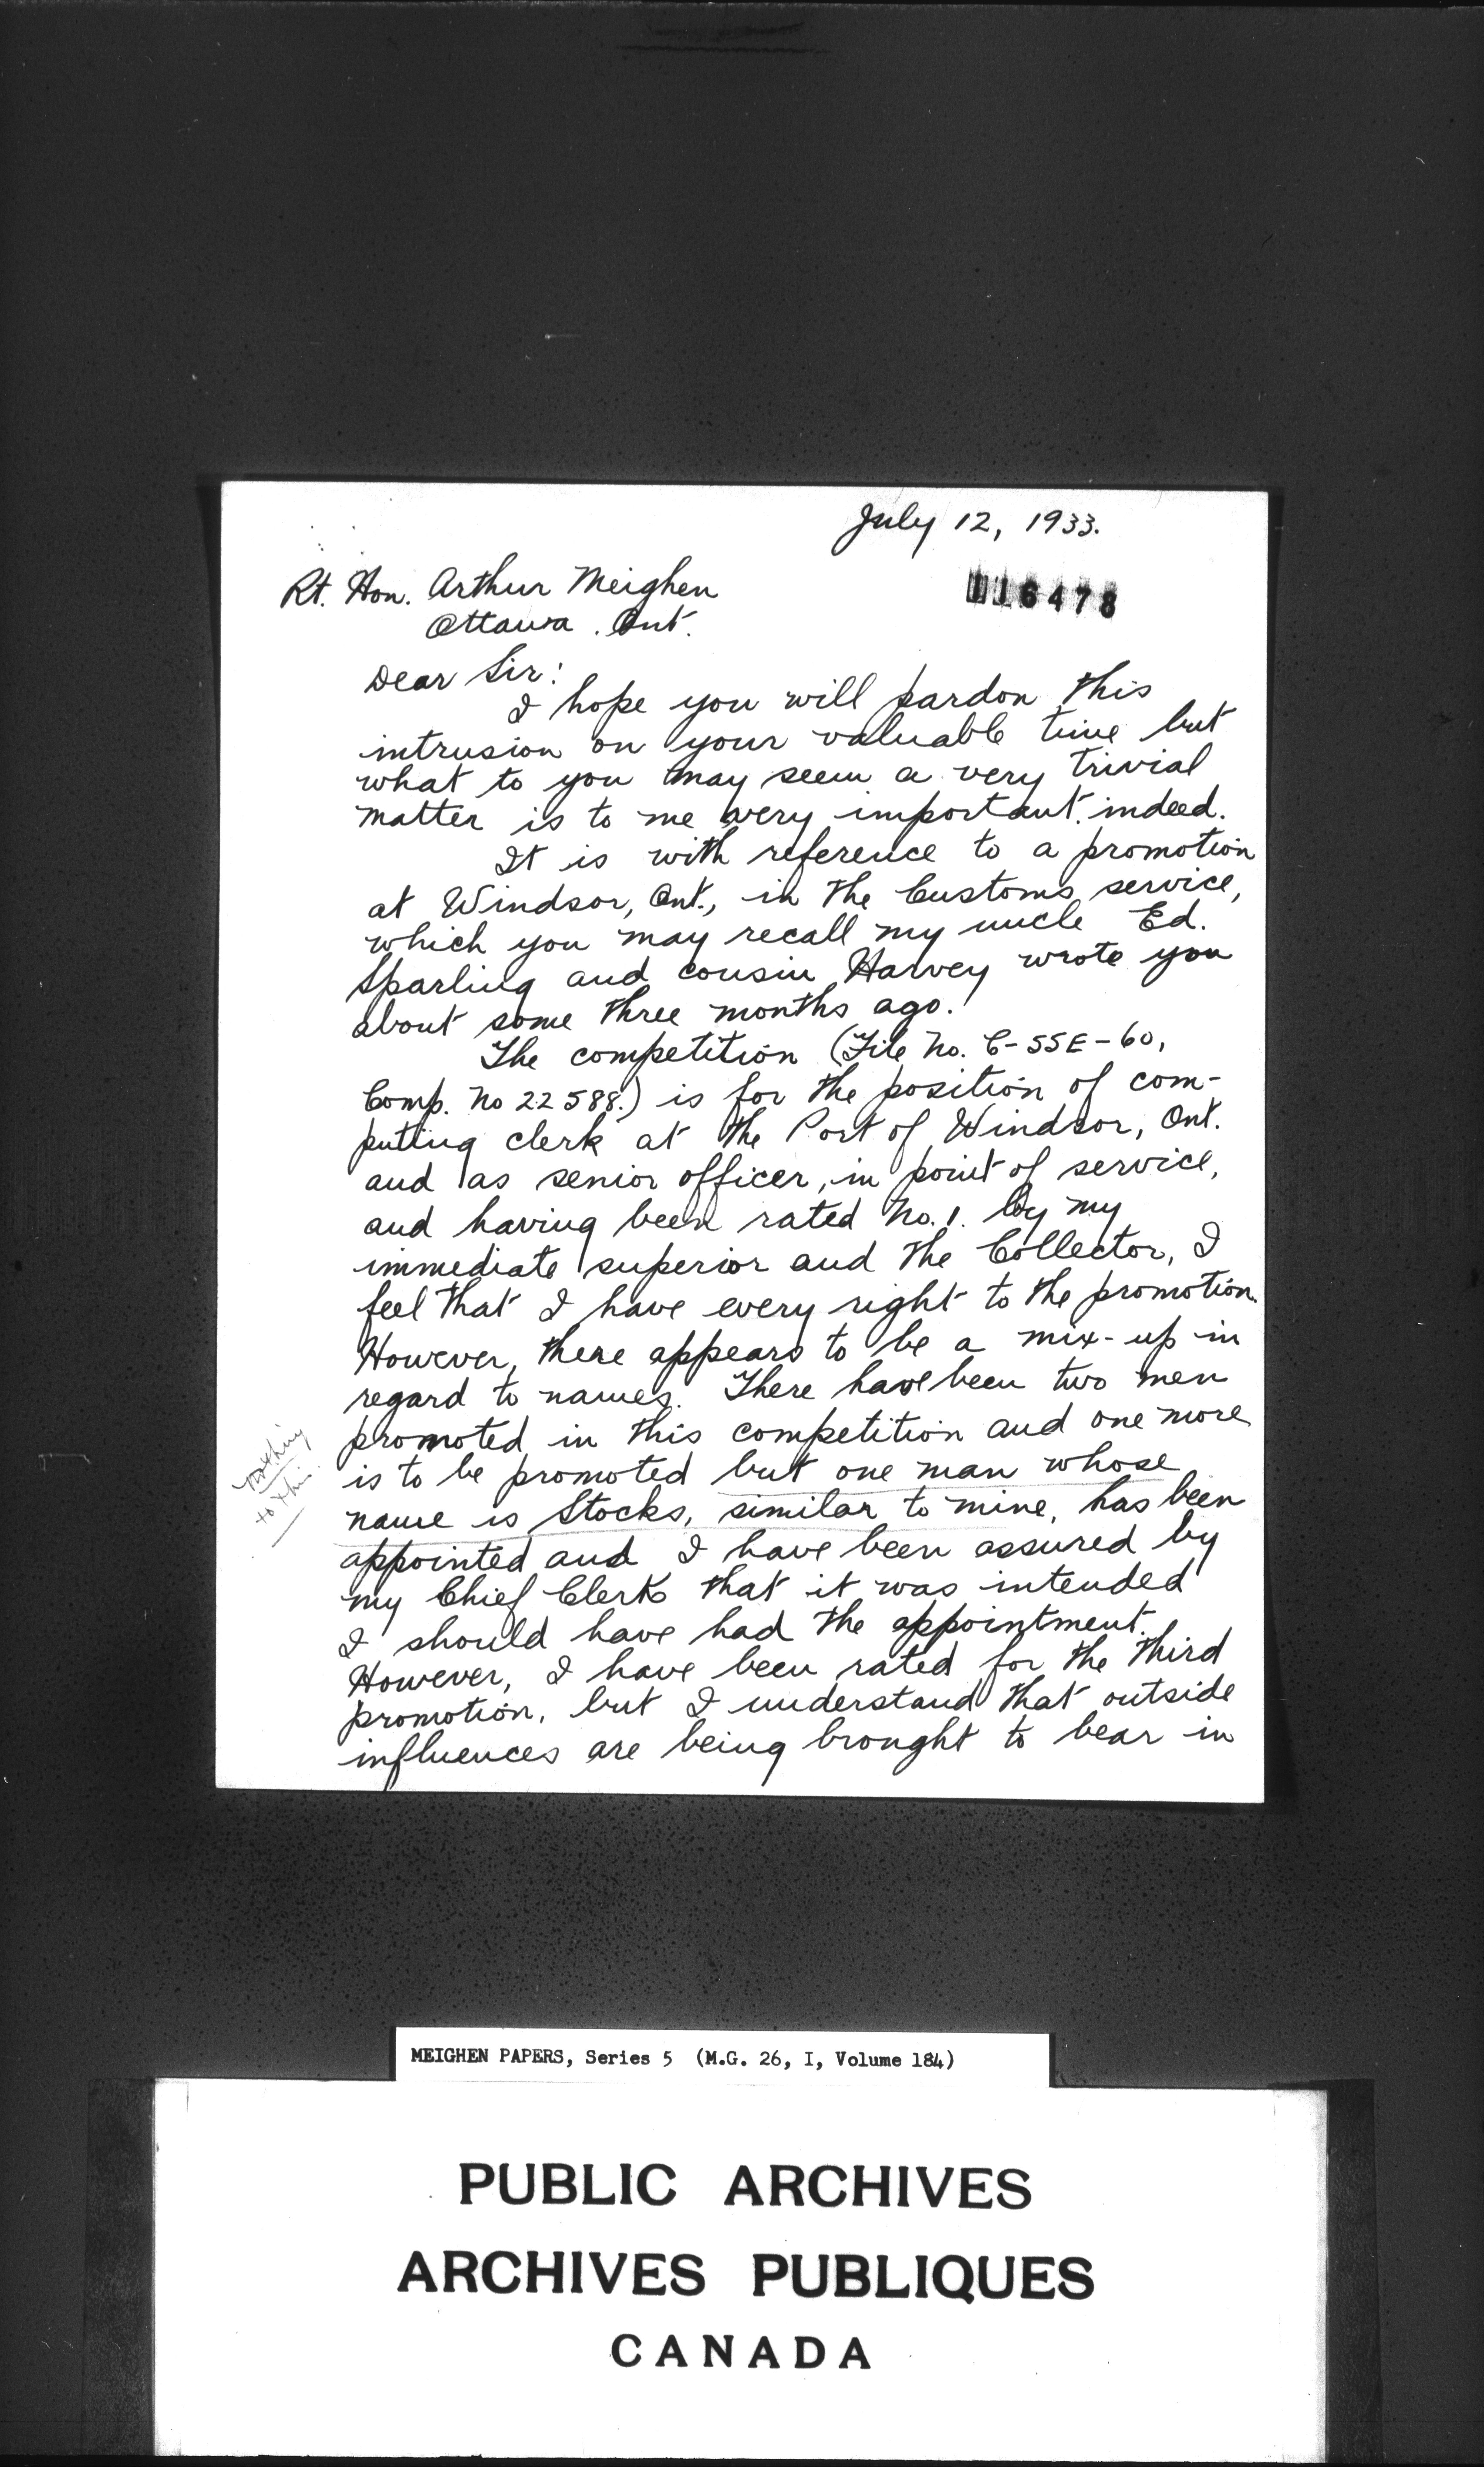 July 12, 1933.
116478
Rt. Hon. Arthur Meighen
Ottawa. Ont.
Dear Sir:
I hope you will pardon this
intrusion on your valuable time but
what to you may seem a very trivial
matter is to me very important indeed.
It is with reference to a promotion
at Windsor, Ont., in the Customs service,
which you may recall my uncle Ed.
Sparling and cousin Harvey wrote you
about some three months ago.
The competition (File No. C-SSE-60,
Comp. No 22588.) is for the position of com-
puting clerk at the Port of Windsor, Ont.
and as senior officer, in point of service,
and having been rated No. 1. by my
immediate superior and the Collector, I
feel that I have every right to the promotion.
However, there appears to be a mix-up in
regard to names. There have been two men
promoted in this competition and one more
is to be promoted but one man whose
name is Stocks, similar to mine, has been
appointed and I have been assured by
my Chief Clerk that it was intended
I should have had the appointment.
However, I have been rated for the third
promotion, but I understand that outside
influences are being brought to bear in
nothing
to this
MEIGHEN PAPERS, Series 5 (M.G. 26, I, Volume 184)
PUBLIC ARCHIVES
ARCHIVES PUBLIQUES
CANADA